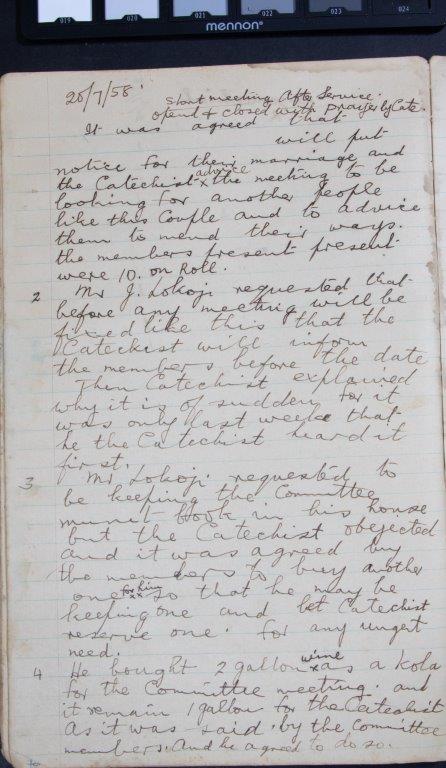 019 020 021 022 023 024
mennon
20/7/58
Short meeting After Service.
opend & closed with prayer by Cate.
It was agreed that
will put
notice for their marriage and
the Catechist advice x the meeting to be
looking for another people
like this Couple and to advice
them to mend their ways.
the members present present
were 10. on Roll.
2 Mr J. Lokoji requested that
before any meeting will be
fixed like this that the
Catechist will inform
the members before the date
Then Catechist explained
why it is of sudden for it
was only last weeke that
he the Catechist heard it
first.
3 Mr Lokoji requested to
be keeping the Committee
munit Book in his house
but the Catechist obejected
and it was agreed buy
the members to buy another
one for him xx so that he may be
keeping one and let Catechist
reserve one. for any ungent
need.
4 He bought 2 gallon wine x as a kola
for the Committee meeting. and
it remain 1 gallon for the Catechist
As it was said by the Committee
members. And he agreed to do so.